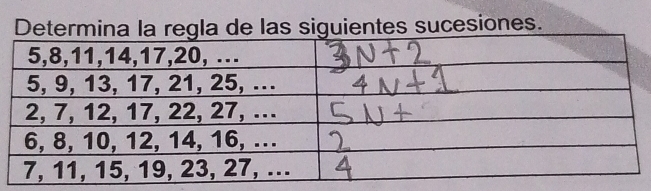 Determina la regla de las siguientes sucesiones.
5,8,11,14,17,20, ... 3N+2
5, 9, 13, 17, 21, 25, ... 4N+1
2, 7, 12, 17, 22, 27, ... 5N+
6, 8, 10, 12, 14, 16, ... 2
7, 11, 15, 19, 23, 27, ... 4